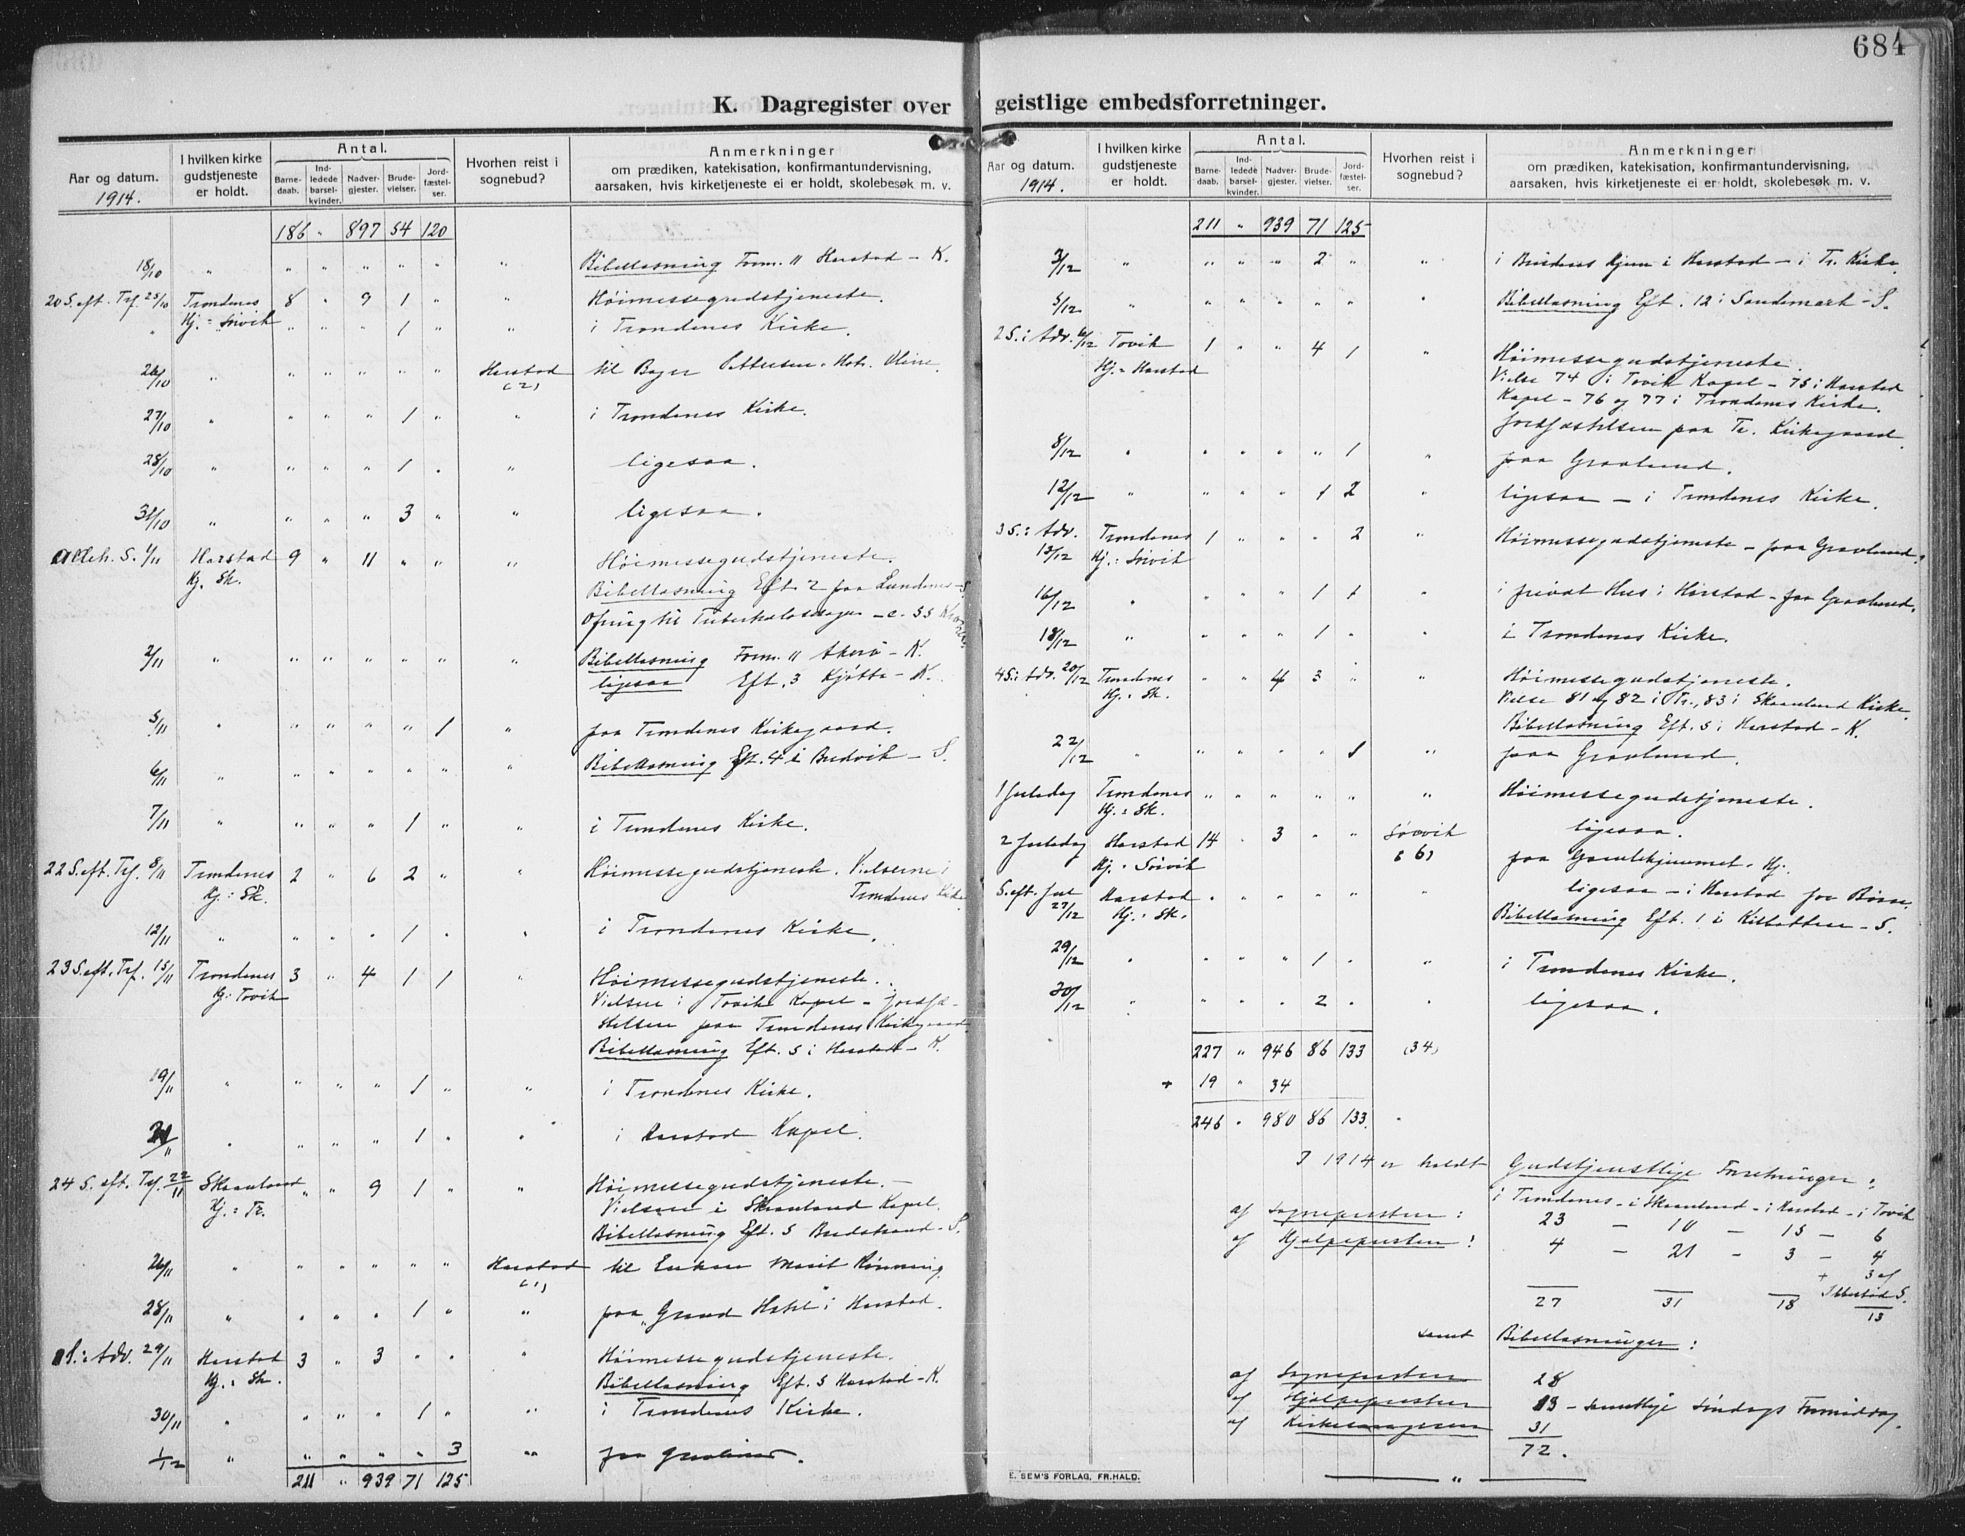 684
K. Dagregister over geistlige embedsforretninger.
Aar og datum. 1914.
I hvilken kirke gudstjeneste er holdt.
Antal.
Barnedaab.
Indledede barselkvinder.
Nadvergjester.
Brudevielser.
Jordfæstelser.
Hvorhen reist i sognebud?
Anmerkninger
om prædiken, katekisation, konfirmantundervisning,
aarsaken, hvis kirketjeneste ei er holdt, skolebesøk m. v.
186 " 897 54 120
18/10 " " " " " " " Bibellæsning Form. 11 Harstad - K.
20 S. eft. Tr. 25/10 Trondenes 8 " 9 1 " " Høimessegudstjeneste.
" Hj. = Sørvik " " " 1 " " i Trondenes Kirke.
26/10 " " " " " " Harstad (2) til Bager Pettersen
27/10 " " " " 1 " " i Trondenes Kirke.
28/10 " " " " 1 " " ligesaa.
31/10 " " " " 3 " " ligesaa.
Alleh. S. 1/11 Harstad 9 " 11 " " " Høimessegudstjeneste.
Hj. Sk. Bibellæsning Eft. 2 paa Lundenes - S.
Ofring til Tuberkulosesagen - c. 55 Kroner
2/11 " " " " " " " Bibellæsning Form. 11 Akerø - K.
ligesaa Eft. 3 Kjøtta - K.
5/11 " " " " " 1 " paa Trondenes Kirkegaard.
6/11 " " " " " " " Bibellæsning Eft. 4 i Brudvik - S.
7/11 " " " " 1 " " i Trondenes Kirke.
22 S. eft. Tr. 8/11 Trondenes 2 " 6 2 " " Høimessegudstjeneste. Vielserne i
Hj. : Sk. Trondenes Kirke
12/11 " " " " 1 " " i Trondenes Kirke.
23 S. eft. Tr. 15/11 Trondenes 3 " 4 1 1 Høimessegudstjeneste.
Hj. : Tovik Vielsen i Tovik Kapel - Jordfæ-
stelsen paa Trondenes Kirkegaard
Bibellæsning Eft. 5 i Harstad - K.
19/11 " " " " 1 " " i Trondenes Kirke.
21/11 " " " " 1 " " i Harstad Kapel.
24 S. eft. Tr. 22/11 Skaanland " " 9 1 " " Høimessegudstjeneste. -
Hj. : Tr. Vielsen i Skaanland Kapel.
Bibellæsning Eft. 5 Breistrand - S.
26/11 " " " " " " Harstad (1) til Enken Marit Rønning
28/11 " " " " 1 " " paa "Grand Hotel i Harstad.
1 S. i Adv. 29/11 Harstad 3 " 3 " " " Høimessegudstjeneste.
Hj. : Sk. Bibellæsning Eft. 5 Harstad - K.
30/11 " " " " 1 " " i Trondenes Kirke.
1/12 " " " " " 3 " paa Gravlund.
211 " 939 71 125
Aar og datum. 1914.
I hvilken kirke gudstjeneste er holdt.
Antal.
Barnedaab.
Indledede barselkvinder.
Nadvergjester.
Brudevielser.
Jordfæstelser.
Hvorhen reist i sognebud?
Anmerkninger
om prædiken, katekisation, konfirmantundervisning,
aarsaken, hvis kirketjeneste ei er holdt, skolebesøk m. v.
211 " 939 71 125
3/12 " " " " 2 " " i Brudenes Hjem i Harstad - i Tr. Kirke.
5/12 " " " " " " " Bibellæsning Eft. 12 i Sandemark - S.
2 S. i Adv. 6/12 Tovik 1 " " 4 1 " Høimessegudstjeneste.
Hj. = Harstad Vielse 74 i Tovik Kapel - 75 i Harstad
Kapel - 76 og 77 i Trondenes Kirke.
Jordfæstelsen paa Tr. Kirkegaard.
8/12 " " " " " 1 " paa Gravlund.
12/12 " " " " 1 2 " ligesaa - i Trondenes Kirke.
3 S. i Adv. 13/12 Trondenes 1 " " " 2 " Høimessegudstjeneste - paa Gravlund.
Hj. : Sørvik
16/12 " " " " 1 1 " i privat Hus i Harstad - paa Gravlund.
18/12 " " " " 1 " " i Trondenes Kirke.
4 S. i Adv. 20/12 Trondenes " " 4 3 " " Høimessegudstjeneste.
Hj. : Sk. Vielse 81 og 82 i Tr., 83 i Skaanland Kirke.
Bibellæsning Eft. 5 i Harstad - K.
22/12 " " " " " 1 " paa Gravlund.
1 Juledag Trondenes " " " " " " Høimessegudstjeneste.
Hj. : Sk.
2 Juledag Harstad 14 " 3 " " Sørvik (6) ligesaa.
Hj. : Sørvik paa Gamlehjemmet. Hj.
S. eft. Jul 27/12 Harstad " " " " " " ligesaa - i Harstad for Børn.
Hj. : Sk. Bibellæsning Eft. 1 i Kilbotten - S.
29/12 " " " " 1 " " i Trondenes Kirke.
30/12 " " " " 2 " " ligesaa.
227 " 946 86 133 (34)
+ 19 " 34
246 " 980 86 133
I 1914 er holdt Gudstjenstlige Forretninger :
i Trondenes - i Skaanland - i Harstad - i Tovik
af Sognepresten : 23 - 10 - 15 - 6
af Hjælpepresten : 4 - 21 - 3 - 4
+ 3 af Ibbestad S.
27 31 18 13
samt Bibellæsninger :
af Sognepresten 28
af Hjælpepresten 13 - samtlige Søndags Formiddag.
af Kirkesangeren 31
72.
E. SEM'S FORLAG, FR.HALD.